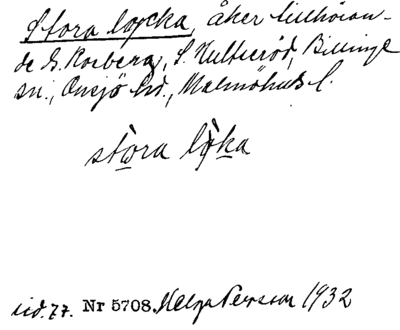 Stora lycka, åker tillhöran-
de G. Rosberg, S. Hultseröd, Billinge
sn., Onsjö hd., Malmöhus l.
stora lyka
sid. 77. Nr 5708. Helga Persson 1932